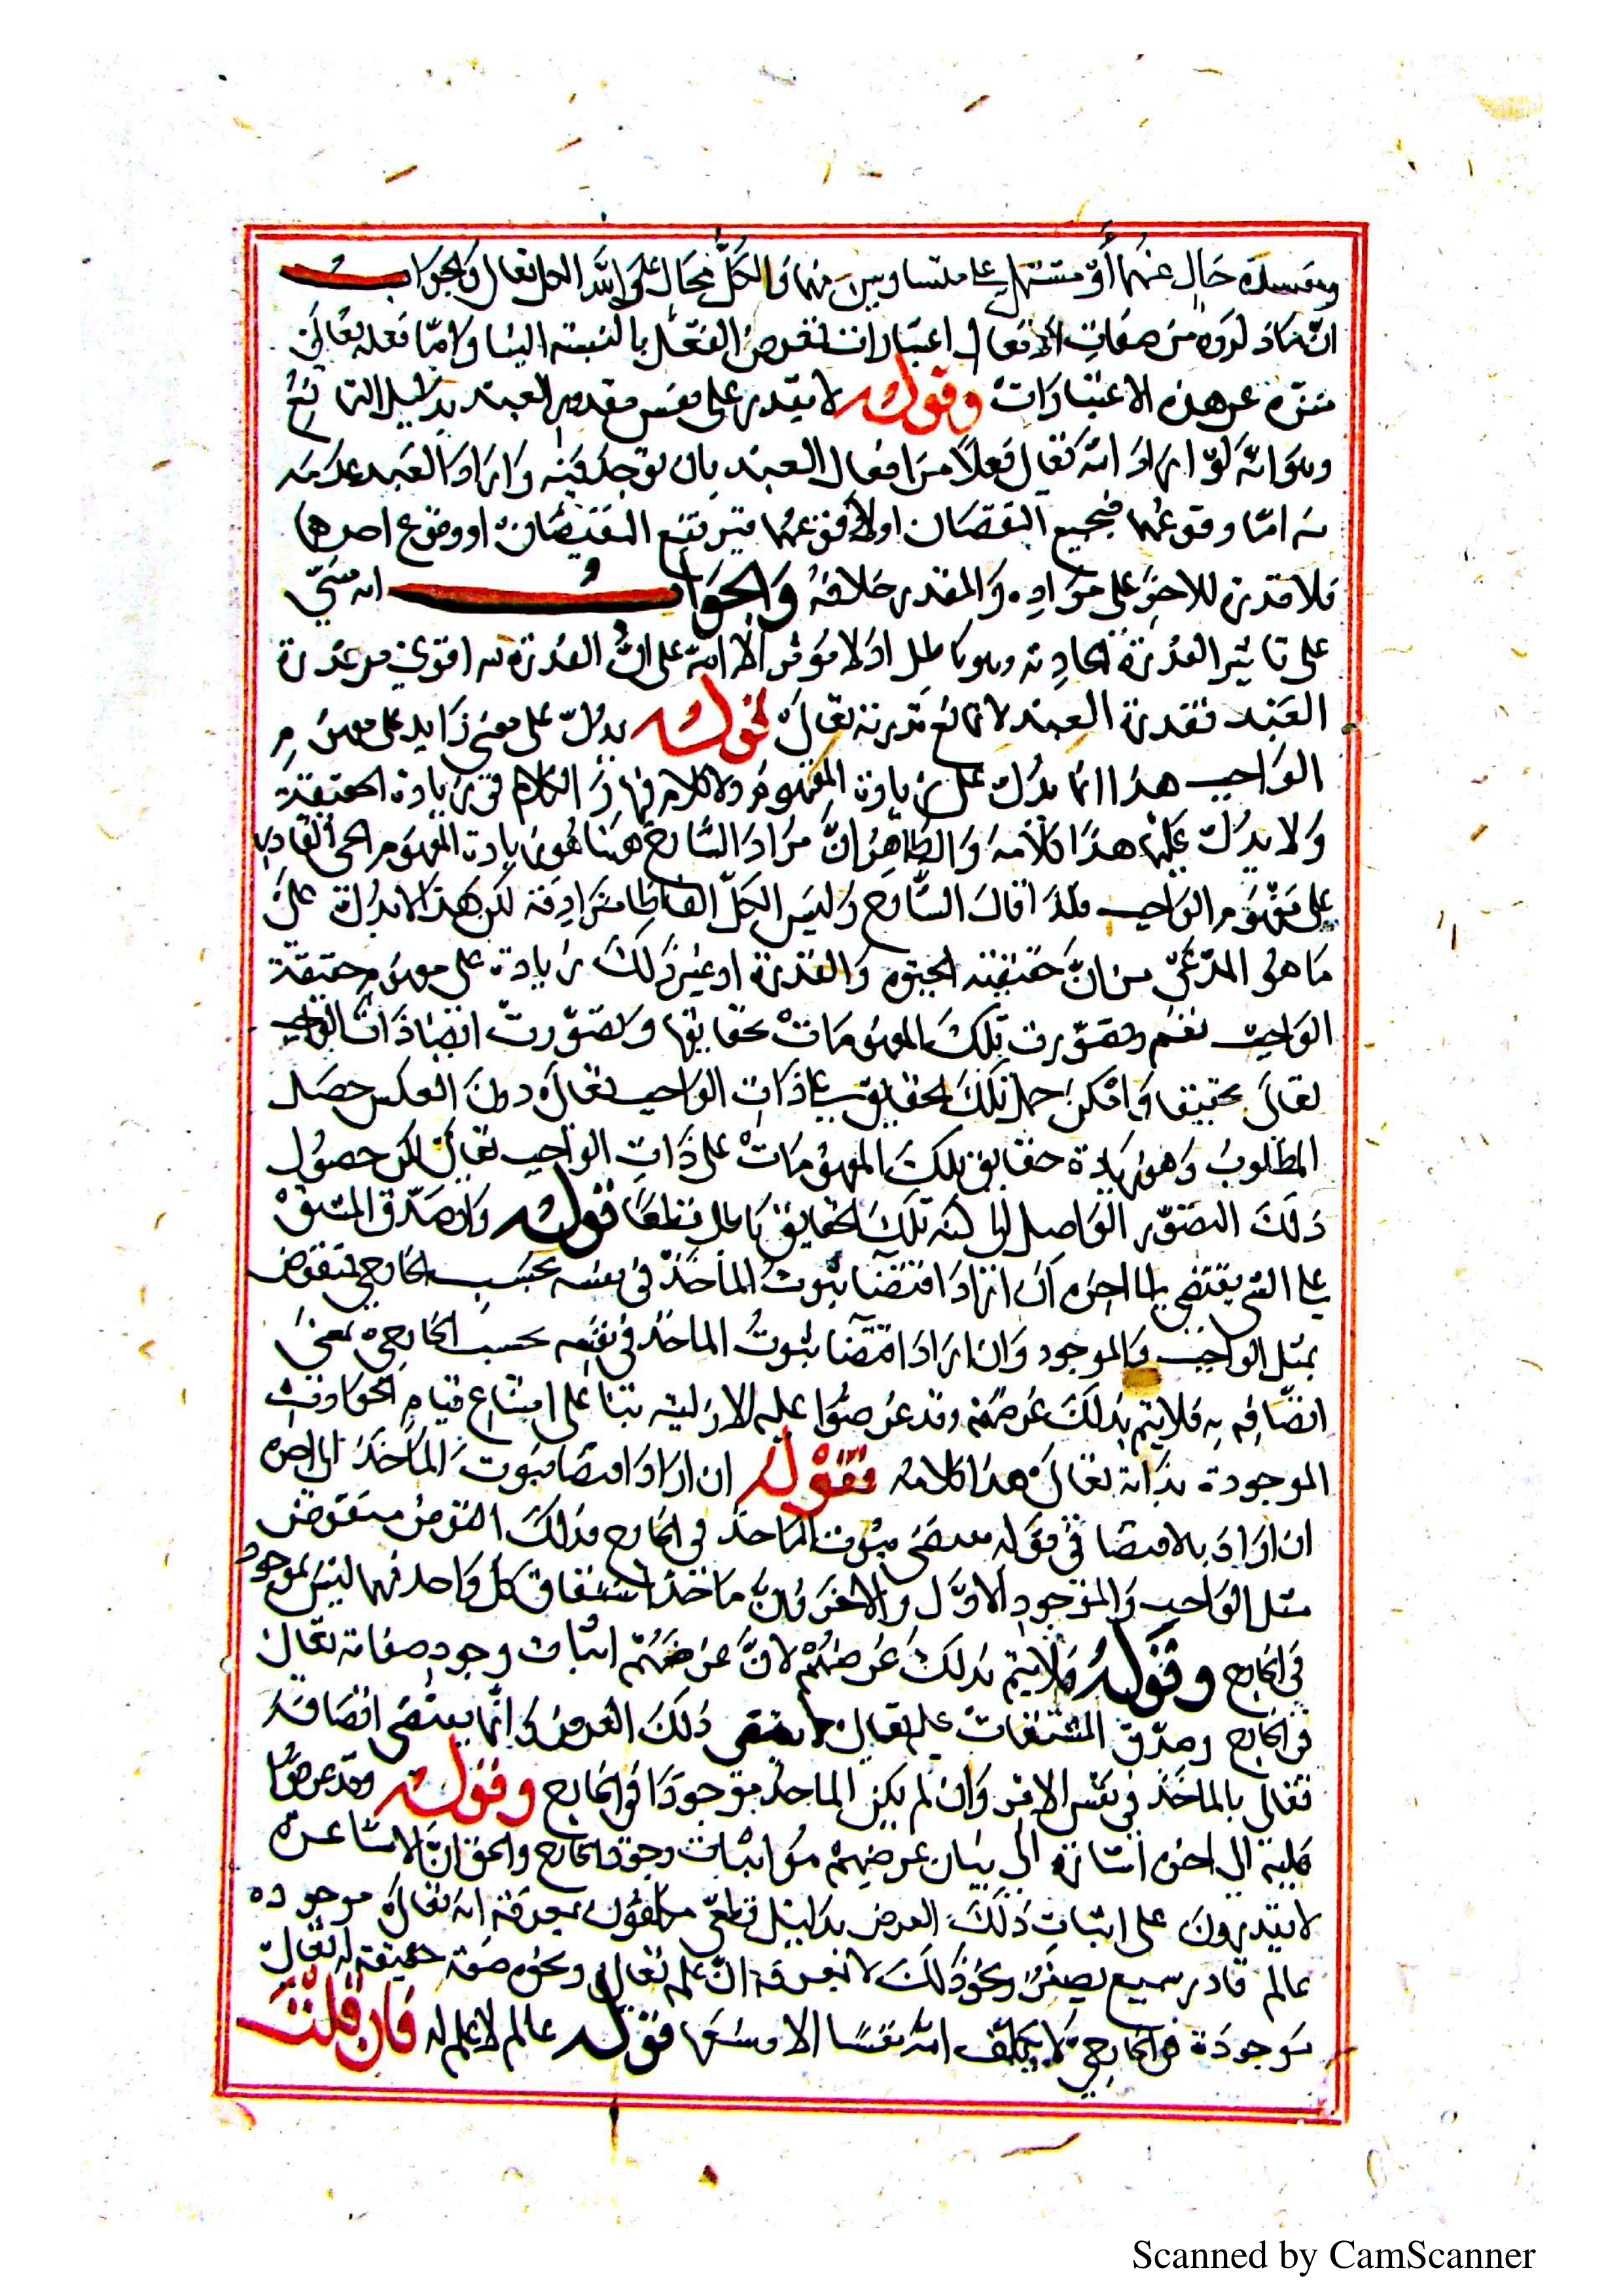 ومفسدة خال عنهما أو مشتمل على متساويين منها والكل محال على الله تعالى والجواب
ان ما ذكروه من صفات الافعال اعتبارات تعرض الفعل بالنسبة الينا واما فعله تعالى
منزه عن هذه الاعتبارات وقوله لا يقدر على نفس مقدور العبد بدليل التمانع
وهو انه لو اراد الله تعالى فعلا من افعال العبد بان يوجد فيه واراد العبد عدمه
منه اما وقوعهما فيجتمع النقيضان اولا وقوعهما فيرتفع النقيضان او وقوع احدهما
فلا قدرة للاخر على مراده والمقدر خلافه والجواب انه مبني
على تاثير القدرة الحادثة وهو باطل اذ لا موثر الا الله على ان القدرة لله اقوى من قدرة
العبد فقدرة العبد لا تمانع قدرته تعالى قوله يدل على معنى زايد على مفهوم
الواجب هذا انما يدل على زيادة المفهوم ولا كلام فيها والكلام في زيادة الحقيقة
ولا يدل عليها هذا كلامه والظاهر ان مراد الشارح ههنا هو زيادة المفهوم الحي القادر
على مفهوم الواجب فلذا قال الشارح وليس الكل الفاظا مترادفة لكن هذا لا يدل على
ما هو المدعي من ان حقيقة الحيوة والقدرة او غير ذلك زيادة على مفهوم حقيقة
الواجب نعم لو تصورت تلك المفهومات بحقايقها وتصورت ايضا ذات الواجب
تعالى بحقيقتها وامكن حمل تلك الحقايق على ذات الواجب تعالى دون العكس حصل
المطلوب وهو زيادة حقايق تلك المفهومات على ذات الواجب تعالى لكن حصول
ذلك التصور الواصل الى كنه تلك الحقايق باطل قطعا قوله وان صدق المشتق
على الشي يقتضي الى اخره ان اراد اقتضا ثبوت الماخذ في نفسه بحسب الخارج فمنقوض
بمثل الواجب والموجود وان اراد اقتضا ثبوت الماخذ في نفسه بحسب الخارج بمعنى
اتصافه به فلا يتم بذلك غرضه وقد عرضوا عليه الازلية بنا على امتناع قيام الحوادث
الموجودة بذاته تعالى هذا كلامه فقوله ان اراد اقتضا ثبوت الماخذ الى اخره
ان اراد بالاقتضا في قوله يقتضي ثبوت الماخذ في الخارج فذلك القوم منقوض
مثل الواجب والموجود الاول والاخر فان ماخذ اشتقاق كل واحد منها ليس بموجود
في الخارج وقوله فلا يتم بذلك غرضهم لان غرضهم اثبات وجود صفاته تعالى
في الخارج وصدق المشتقات عليه تعالى لا يقتضي ذلك الغرض وانما يقتضي اتصافه
تعالى بالماخذ في نفس الامر وان لم يكن الماخذ موجودا في الخارج وقوله وقد عرضوا
عليه الى اخره اشارة الى بيان غرضهم من اثبات وجود الخارج والحق ان الاشاعرة
لا يقدرون على اثبات ذلك الغرض بدليل قطعي مكلفون بمعرفة انه تعالى موجوده
عالم قادر سميع بصير ونحو ذلك لا بمعرفة ان علمه تعالى ونحوه صفة حقيقة له تعالى
موجودة في الخارج لا يكلف الله نفسا الا وسعها قوله عالم لا علم له فان قلت
Scanned by CamScanner